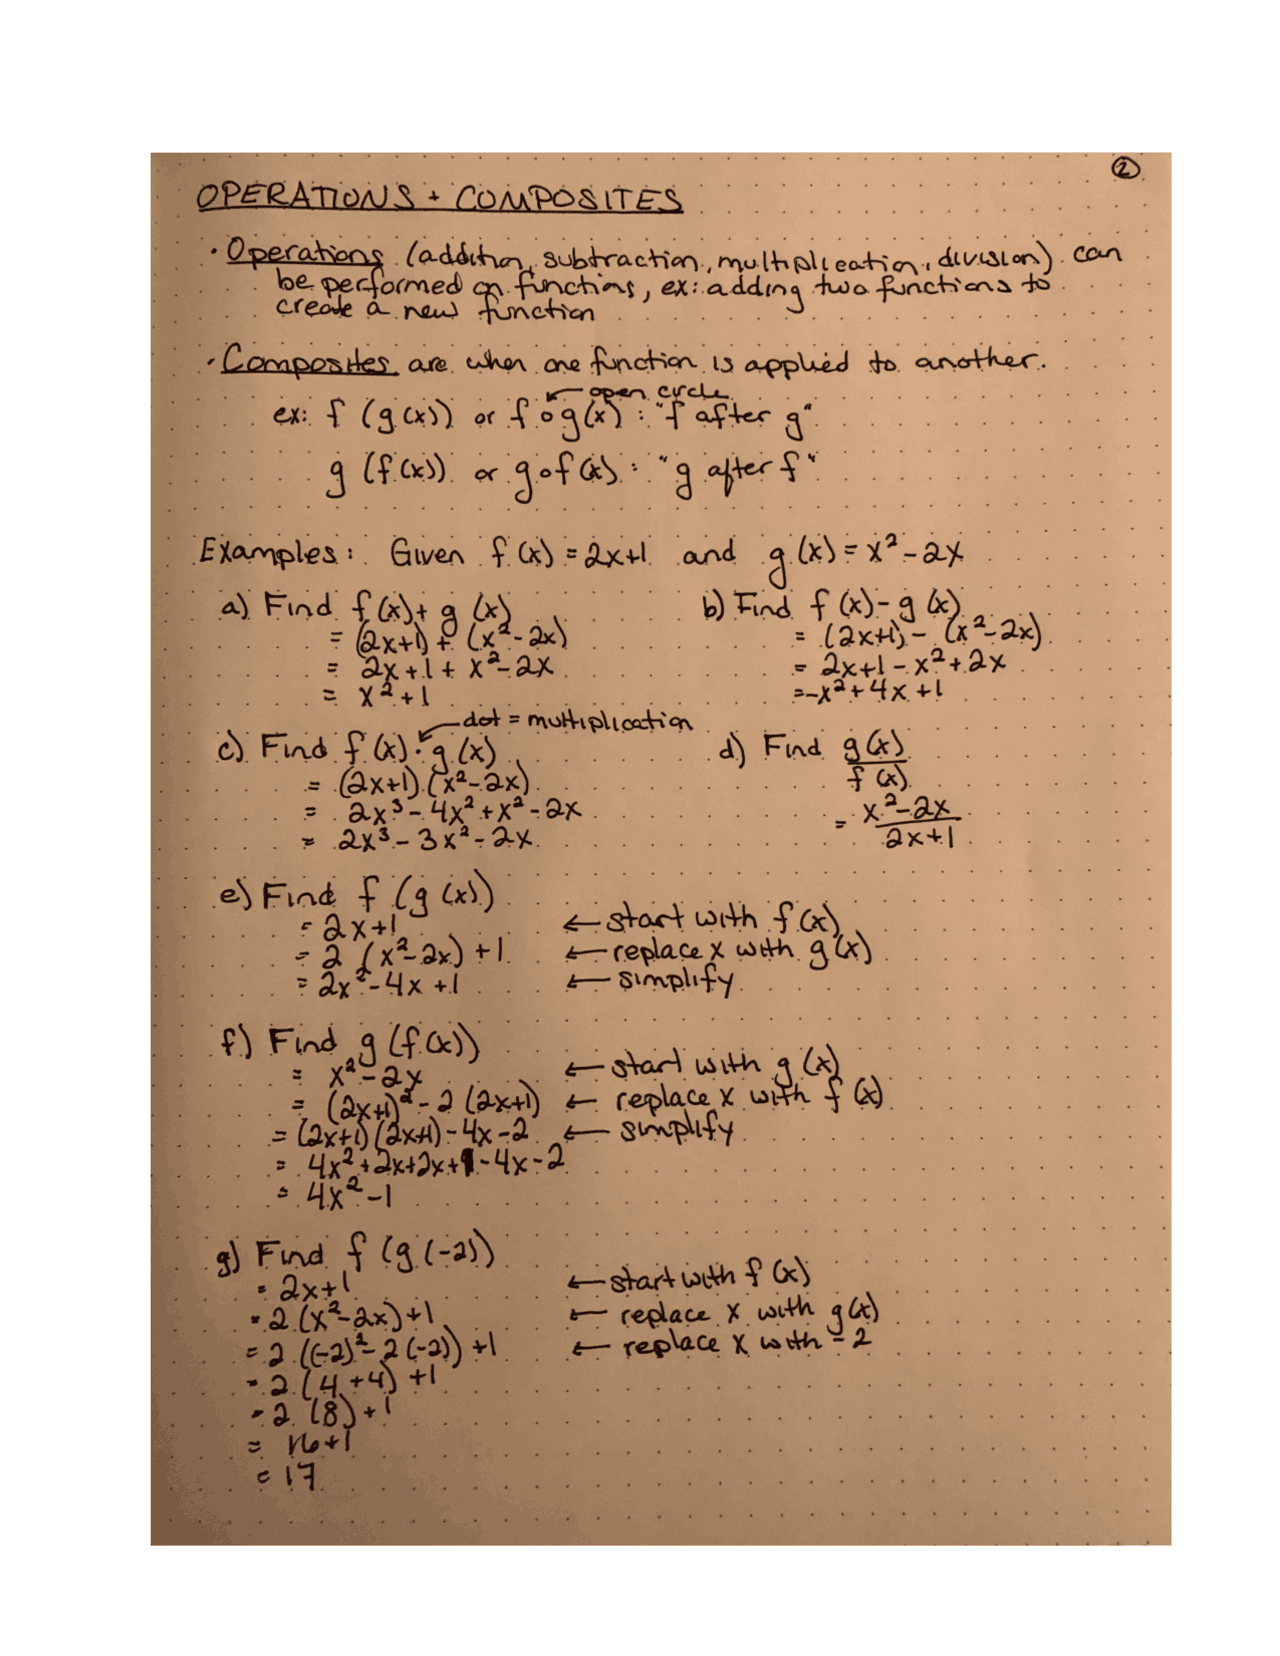 ②
OPERATIONS + COMPOSITES
· Operations (addition, subtraction, multiplication, division) can
be performed on functions, ex: adding two functions to
create a new function
· Composites are when one function is applied to another.
← open circle
ex: f (g(x)) or f∘g(x) : "f after g"
g (f(x)) or g∘f(x) : "g after f"
Examples: Given f(x) = 2x+1 and g(x) = x² - 2x
a) Find f(x) + g(x)
= (2x+1) + (x² - 2x)
= 2x + 1 + x² - 2x
= x² + 1
b) Find f(x) - g(x)
= (2x+1) - (x² - 2x)
= 2x+1 - x² + 2x
= -x² + 4x + 1
← dot = multiplication
c) Find f(x) · g(x)
= (2x+1)(x² - 2x)
= 2x³ - 4x² + x² - 2x
= 2x³ - 3x² - 2x
d) Find g(x)
f(x)
= x² - 2x
2x+1
e) Find f (g(x))
= 2x+1 ← start with f(x)
= 2 (x² - 2x) + 1 ← replace x with g(x)
= 2x² - 4x + 1 ← simplify
f) Find g (f(x))
= x² - 2x ← start with g(x)
= (2x+1)² - 2 (2x+1) ← replace x with f(x)
= (2x+1)(2x+1) - 4x - 2 ← simplify
= 4x² + 2x + 2x + 1 - 4x - 2
= 4x² - 1
g) Find f (g(-2))
= 2x+1 ← start with f(x)
= 2 (x² - 2x) + 1 ← replace x with g(x)
= 2 ((-2)² - 2(-2)) + 1 ← replace x with -2
= 2 (4 + 4) + 1
= 2 (8) + 1
= 16+1
= 17